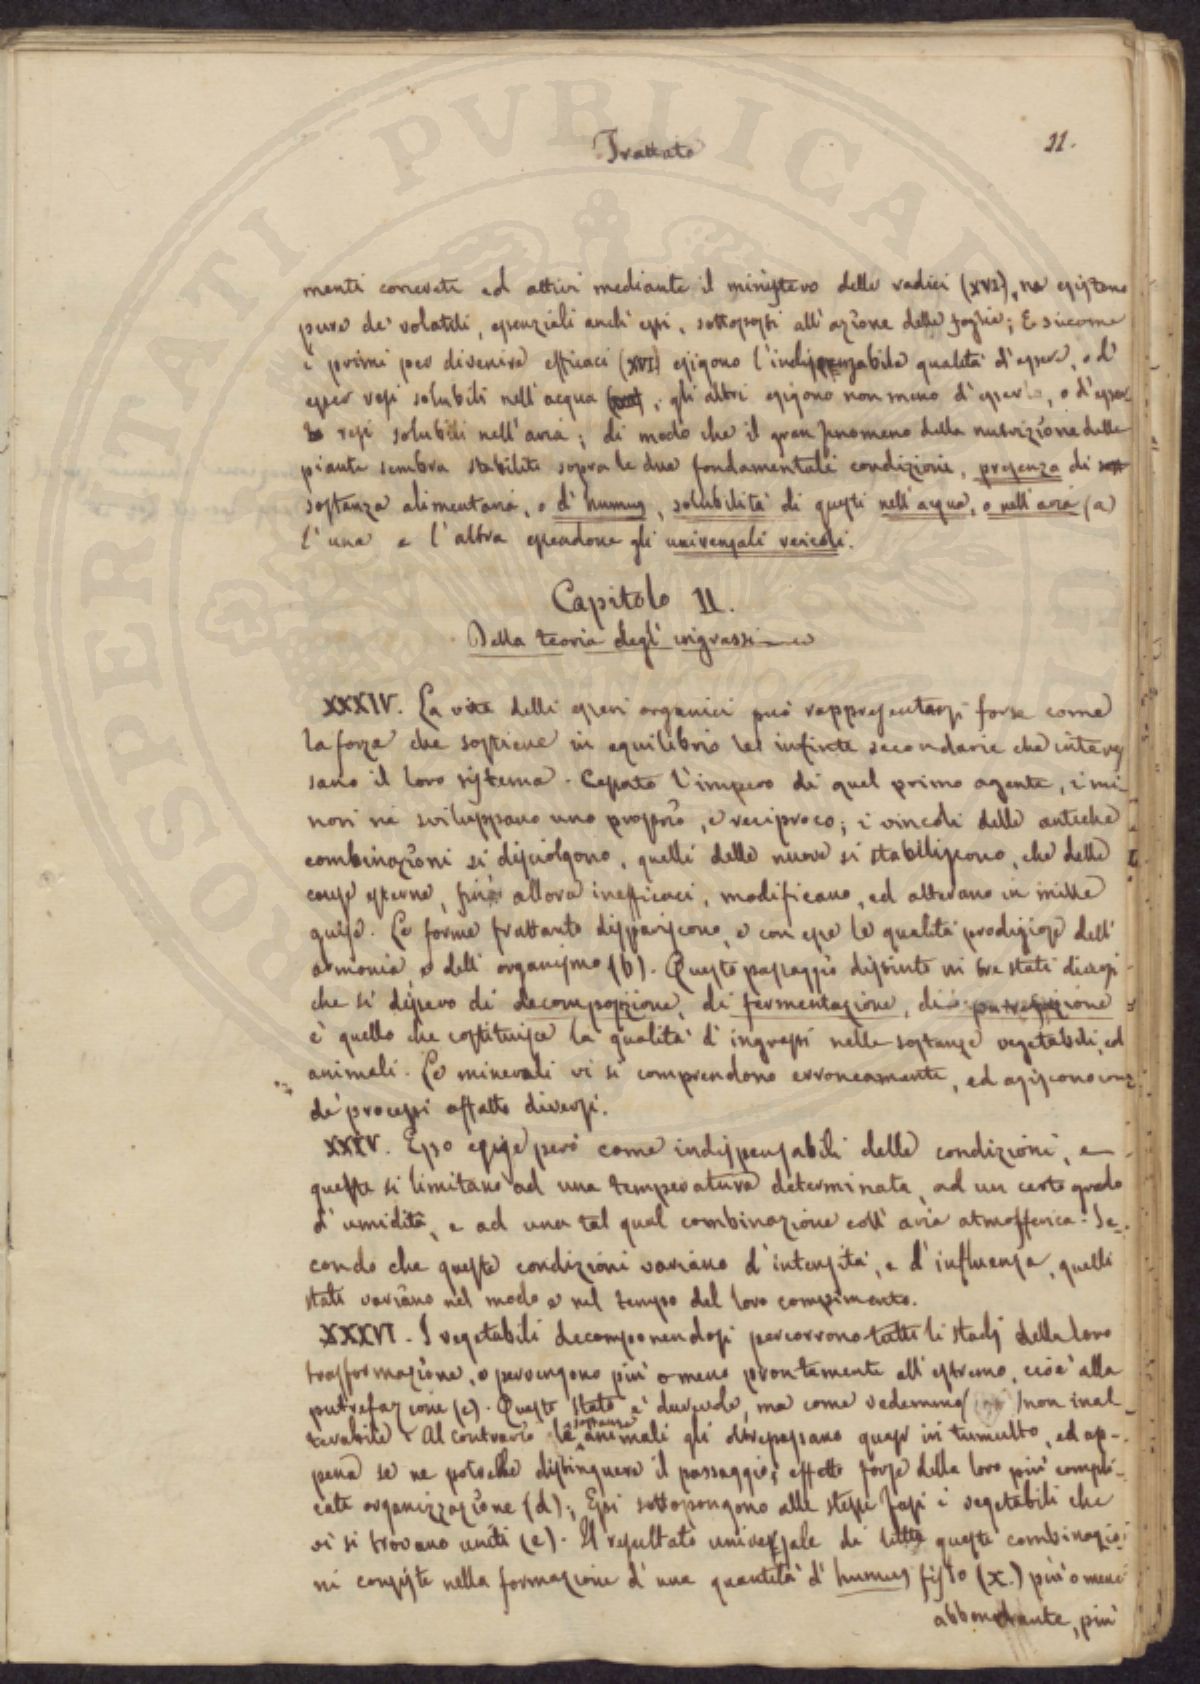 PROSPERITATI PVBLICAE
Trattato
11.
menti concreti ed attivi mediante il ministero delle radici (XVI), ne esistono
pure de' volatili, essenziali anch'essi, sottoposti all'azione delle foglie; E siccome
i primi per divenire efficaci (XVI) esigono l'indispensabile qualità d'essere, o d'
esser resi solubili nell'acqua, gli altri esigono non meno d'esserlo, o d'esser
resi solubili nell'aria; di modo che il gran fenomeno della nutrizione delle
piante sembra stabilito sopra le due fondamentali condizioni, presenza di
sostanza alimentaria, o d'humus, solubilità di questi nell'acqua, o nell'aria (a)
l'una e l'altra essendone gli universali veicoli.
Capitolo II.
Della teoria degl'ingrassi
XXXIV. La vita delli esseri organici può rappresentarsi forse come
la forza che sostiene in equilibrio le infinite secondarie che interes
sano il loro sistema. Cessato l'impero di quel primo agente, i mi-
nori ne sviluppano uno proprio, e reciproco; i vincoli delle antiche
combinazioni si disciolgono, quelli delle nuove si stabiliscono, che delle
cause esterne, sino allora inefficaci, modificano, ed alterano in mille
guise. Le forme frattanto dispariscono, e con esse le qualità prodigiose dell'
armonia, e dell'organismo (b). Questo passaggio distinto in tre stati diversi
che si dissero di decomposizione, di fermentazione, di putrefazione
è quello che costituisce la qualità d'ingrassi nelle sostanze vegetabili, ed
animali. Le minerali vi si comprendono erroneamente, ed agiscono con
de' processi affatto diversi.
XXXV. Esso esige però come indispensabili delle condizioni, e
queste si limitano ad una temperatura determinata, ad un certo grado
d'umidità, e ad una tal qual combinazione coll'aria atmosferica. Se-
condo che queste condizioni variano d'intensità, e d'influenza, quelli
stati variano nel modo e nel tempo del loro compimento.
XXXVI. I vegetabili decomponendosi percorrono tutti li stadj della loro
trasformazione, e pervengono più o meno prontamente all'estremo, cioè alla
putrefazione (c). Questo stato è durevole, ma come vedemmo ( ) non inal
terabile. Al contrario le sostanze animali gli oltrepassano quasi in tumulto, ed ap-
pena se ne potrebbe distinguere il passaggio; effetto forse della loro più compli-
cata organizzazione (d); Essi sottopongono alle stesse fasi i vegetabili che
vi si trovano uniti (e). Il resultato universale di tutte queste combinazio-
ni consiste nella formazione d'una quantità d'humus fisso (X.) più o meno
abbondante, più